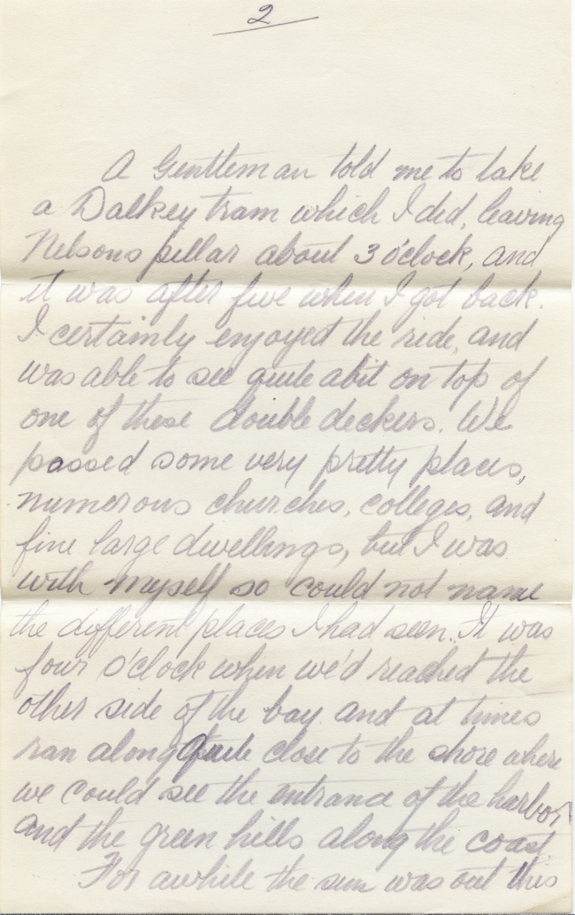 2
A Gentleman told me to take
a Dalkey tram which I did, leaving
Nelsons pillar about 3 o'clock, and
it was after five when I got back.
I certainly enjoyed the ride, and
was able to see quite abit on top of
one of these double deckers. We
passed some very pretty places,
numerous churches, colleges, and
fine large dwellings, but I was
with myself so could not name
the different places I had seen. It was
four o'clock when we'd reached the
other side of the bay and at times
ran along quite close to the shore where
we could see the entrance of the harbor
and the green hills along the coast
For awhile the sun was out this